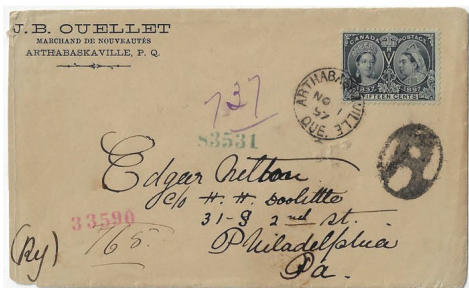 J. B. OUELLET
MARCHAND DE NOUVEAUTÉS
ARTHABASKAVILLE, P. Q.
CANADA POSTAGE
1837 1897
FIFTEEN CENTS
ARTHABASKAVILLE
NO 1
97
QUE.
737
83531
Edgar Nelton
c/o H. H. Doolittle
31-S 2nd St.
Philadelphia
Pa.
33590
768
(Ry)